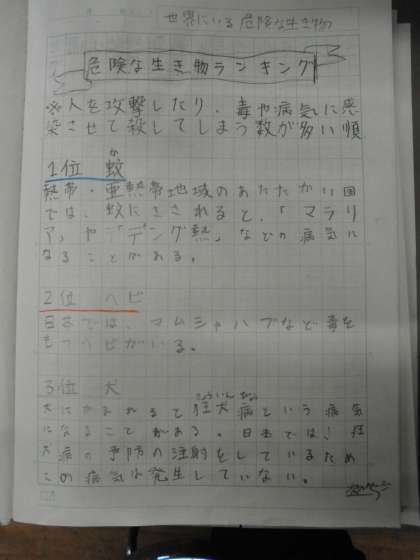 世界にいる危険な生き物
危険な生き物ランキング
※人を攻撃したり、毒や病気に感
染させて殺してしまう数が多い順
か
1位 蚊
熱帯・亜熱帯地域のあたたかい国
では、蚊にさされると、「マラリ
ア」や「デング熱」などの病気に
なることがある。
2位 ヘビ
日本では、マムシやハブなど毒を
もつヘビがいる。
3位 犬
きょうけんびょう
犬にかまれると狂犬病という病気
になることがある。日本では、狂
犬病の予防の注射をしているため
この病気は発生していない。